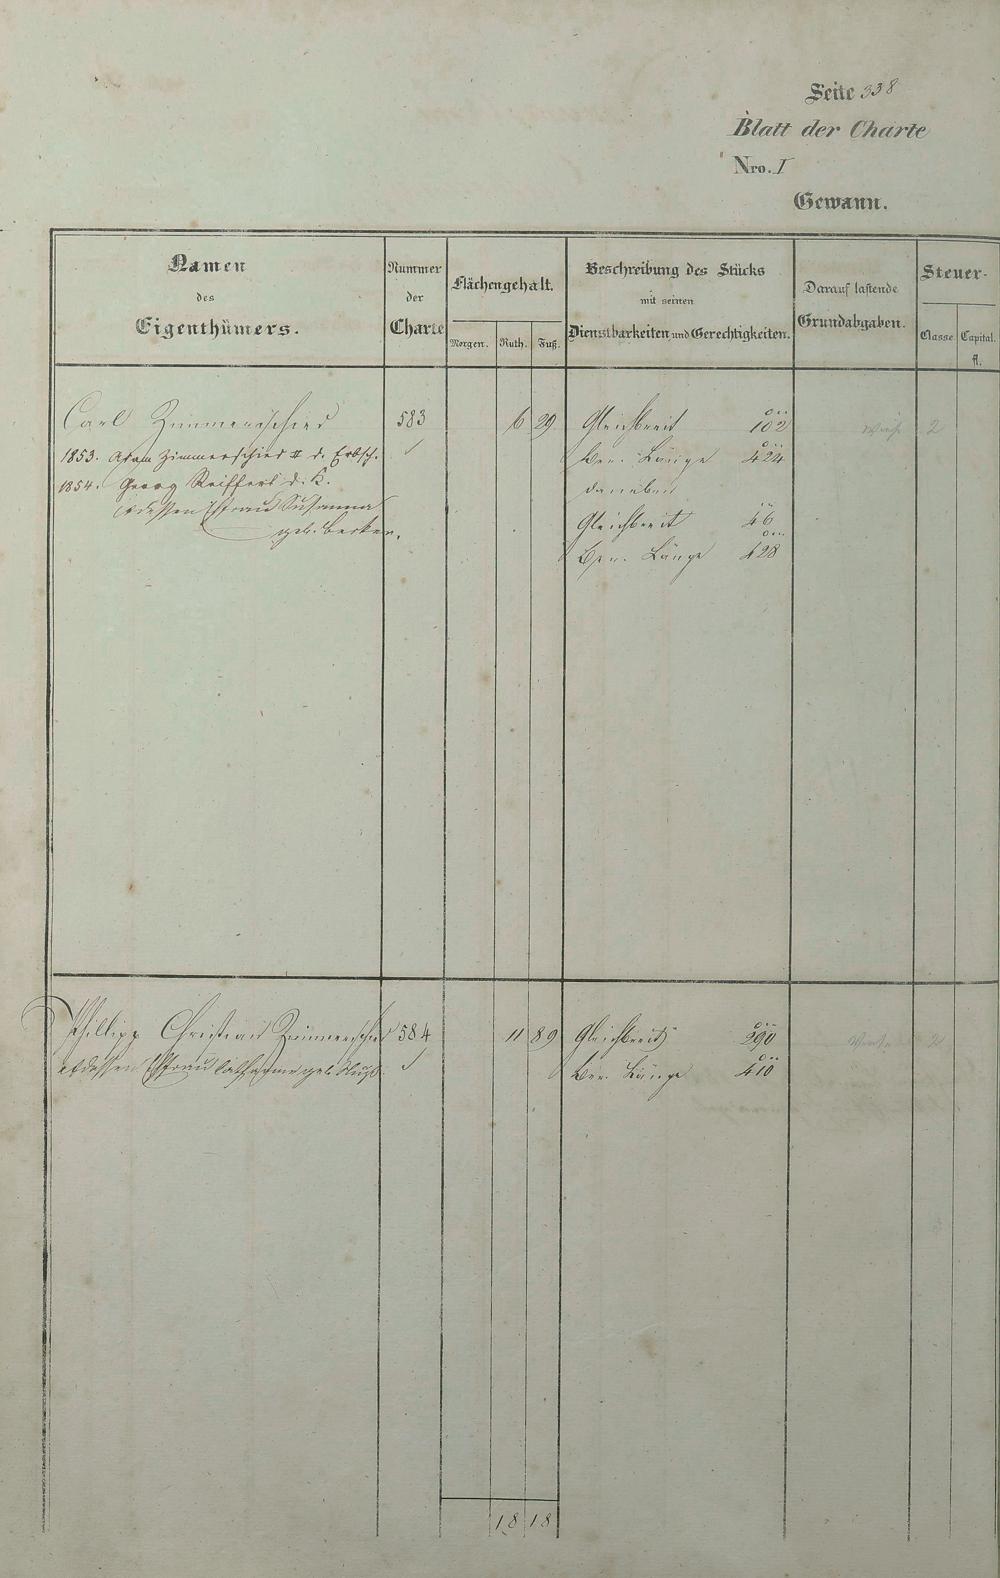 Seite 338
Blatt der Charte
Nro. I
Gewann.
Namen
des
Eigenthümers.
Nummer
der
Charte
Flächengehalt.
Morgen. Ruth. Fuß.
Beschreibung des Stücks
mit seinen
Dienstbarkeiten und Gerechtigkeiten.
Darauf lastende
Grundabgaben.
Steuer-
Classe Capital.
fl.
Carl Zimmerschied 583 6 29 Gleichbreit 102 Wiese 2
1853. Adam Zimmerschied II d. Erbsch. Ber. Länge 424
1854. Georg Reiffert d. K. daneben
dessen Ehefrau Susanna Gleichbreit 46
geb. Becker. Ber. Länge 428
Phillipp Christian Zimmerschied 584 11 89 Gleichbreit 290 Wiese 2
dessen Ehefrau Catharine geb. Ber. Länge 410
18 18